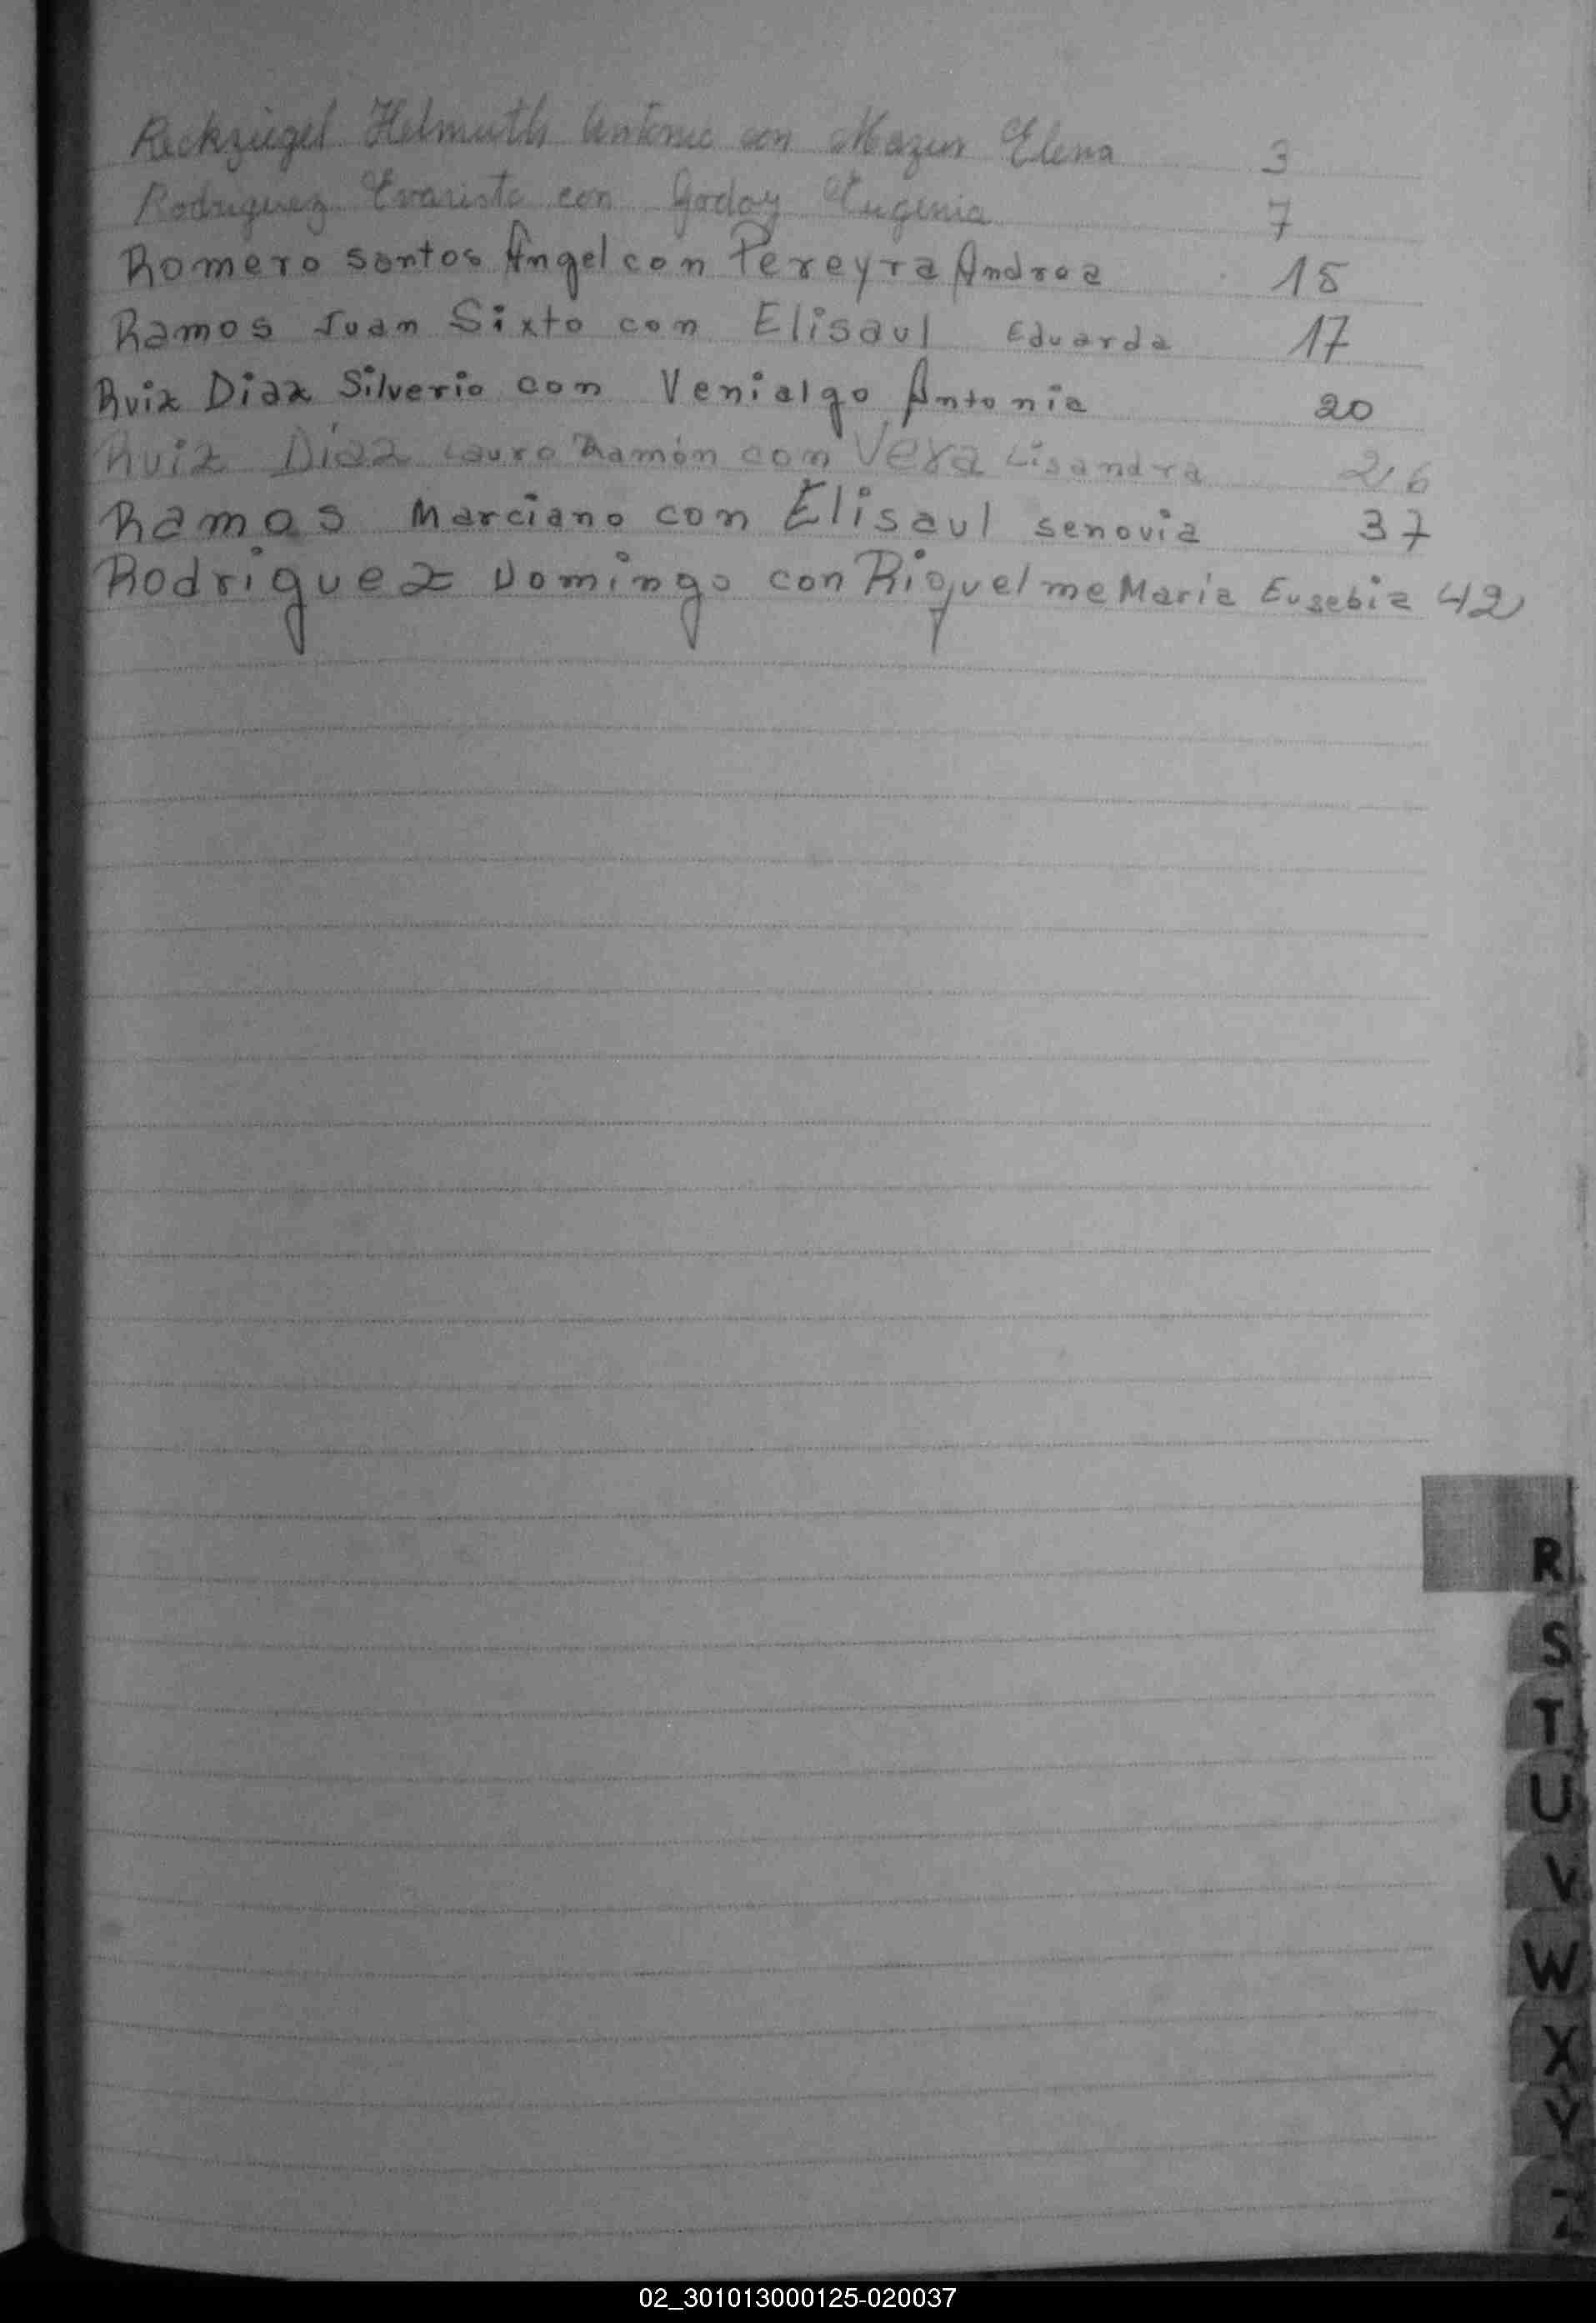 Reckziegel Helmuth Antonio con Mazur Elena 3
Rodriguez Evaristo con Godoy Eugenia 7
Romero Santos Angel con Pereyra Andrea 15
Ramos Juan Sixto con Elisaul Eduarda 17
Ruiz Diaz Silverio con Venialgo Antonia 20
Ruiz Díaz Lauro Ramón con Vera Lisandra 26
Ramos Marciano con Elisaul senovia 37
Rodriguez Domingo con Riquelme María Eusebia 42
R
S
T
U
V
W
X
Y
Z
02_301013000125-020037